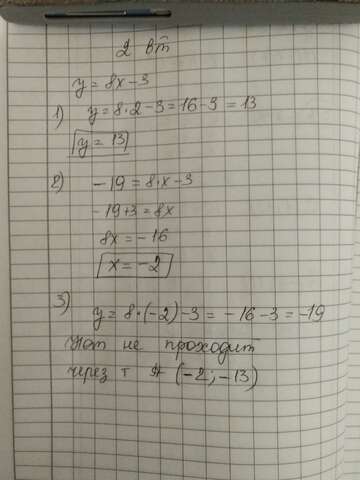 2 вт
y = 8x - 3
1) y = 8 · 2 - 3 = 16 - 3 = 13
y = 13
2) - 19 = 8 · x - 3
- 19 + 3 = 8x
8x = - 16
x = - 2
3) y = 8 · (-2) - 3 = - 16 - 3 = - 19
не проходит
через т (-2; -13)